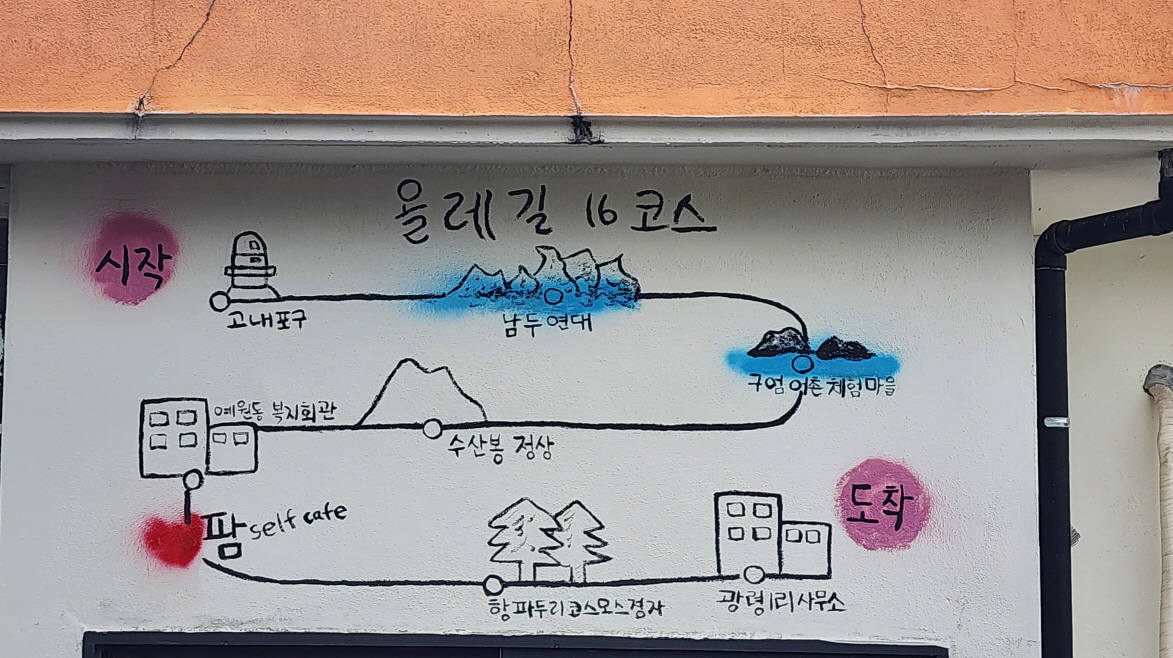 올레길 16코스
시작
고내포구
남두연대
구엄어촌체험마을
수산봉 정상
예원동 복지회관
팜 self cafe
항파두리코스모스정자
광령1리사무소
도착